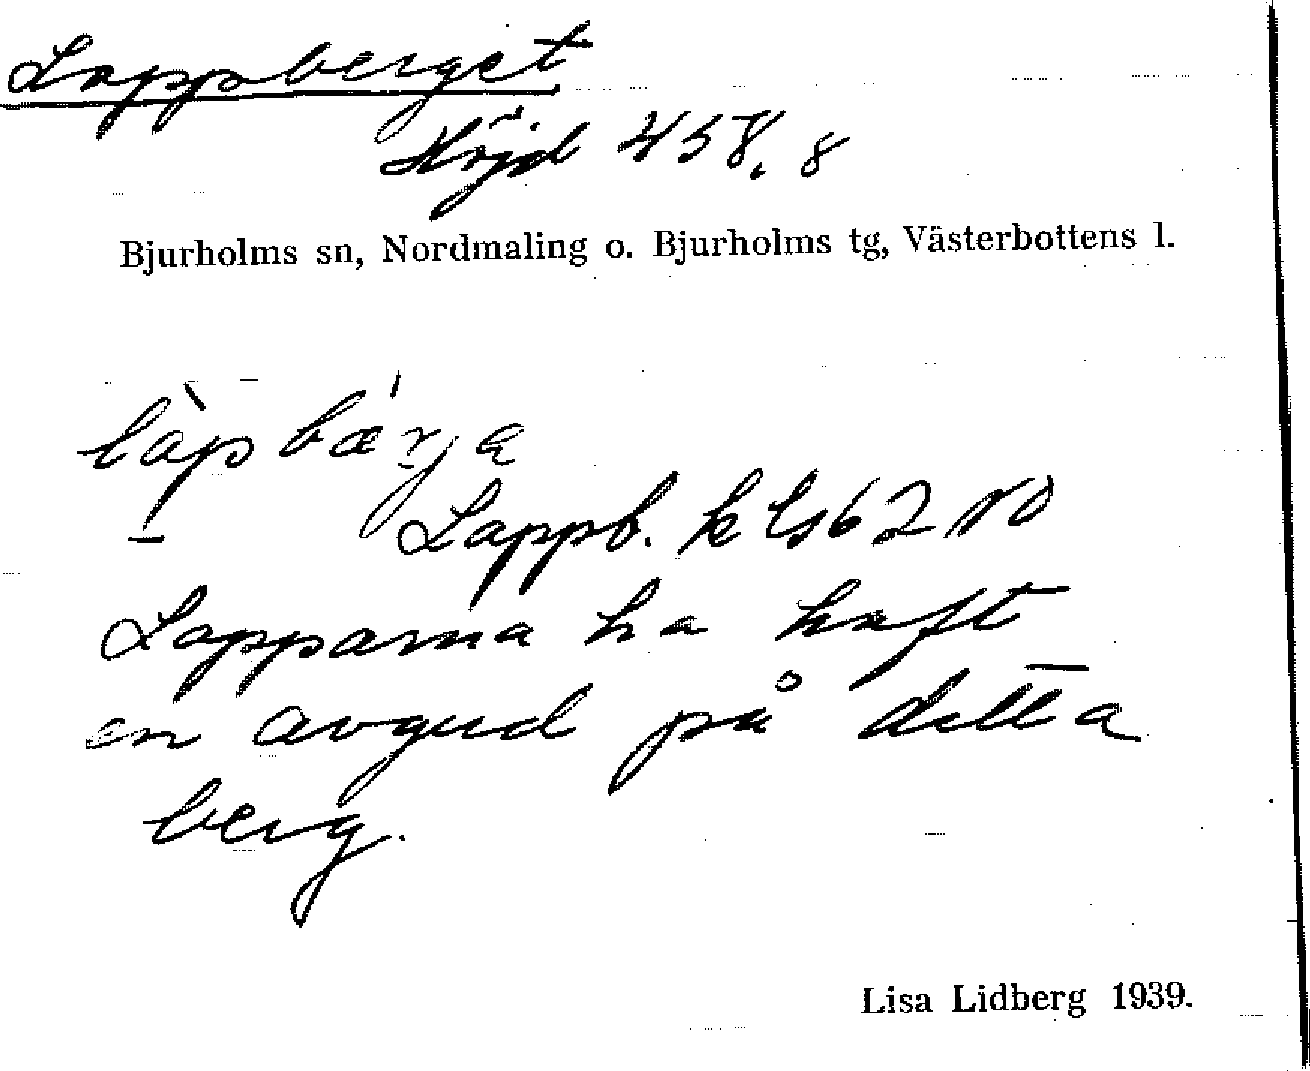 Lappberget
Höjd 458.8
Bjurholms sn, Nordmaling o. Bjurholms tg, Västerbottens l.
làpbær̨ja
Lappb. k bl 62 NO
Lapparna ha haft
en avgud på detta
berg.
Lisa Lidberg 1939.